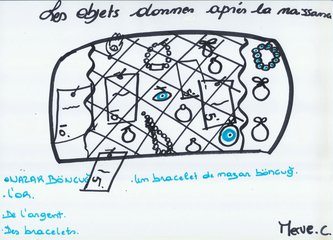 Les objets donnés après la naissance
10.
15.
15.
•NAZAR BÖNCUĞ
•Un bracelet de nazar böncuğ.
•L'OR.
•De l'argent.
•Des bracelets.
Merve.C.